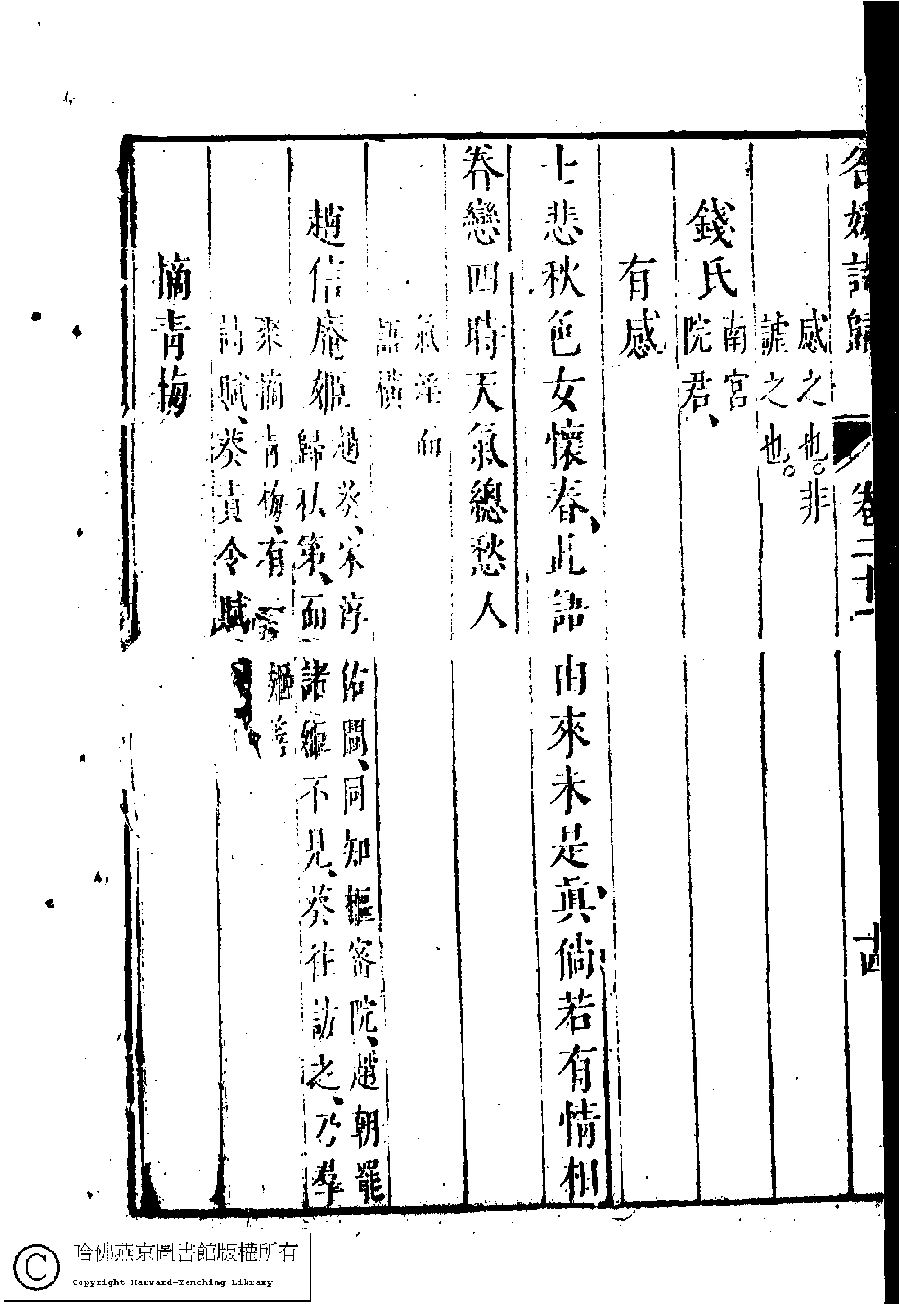 名媛詩歸 卷二十一 古
感之也。非
謔之也。
錢氏 南宮
院君、
有感
士悲秋色女懷春、此語由來未是眞、倘若有情相
眷戀四時天氣總愁人
氣淫而
語橫
趙信庵姬 趙葵、宋淳祐間、同知樞密院、趙朝罷
歸私第、面諸姬不見、葵往訪之、乃羣
來摘青梅、有一姬善
詩賦、葵責令賦
摘青梅
哈佛燕京圖書館版權所有
Copyright Harvard-Yenching Library